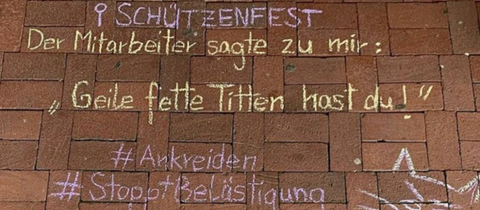 SCHÜTZENFEST
Der Mitarbeiter sagte zu mir:
„Geile fette Titten hast du!“
#Ankreiden
#StopptBelästigung